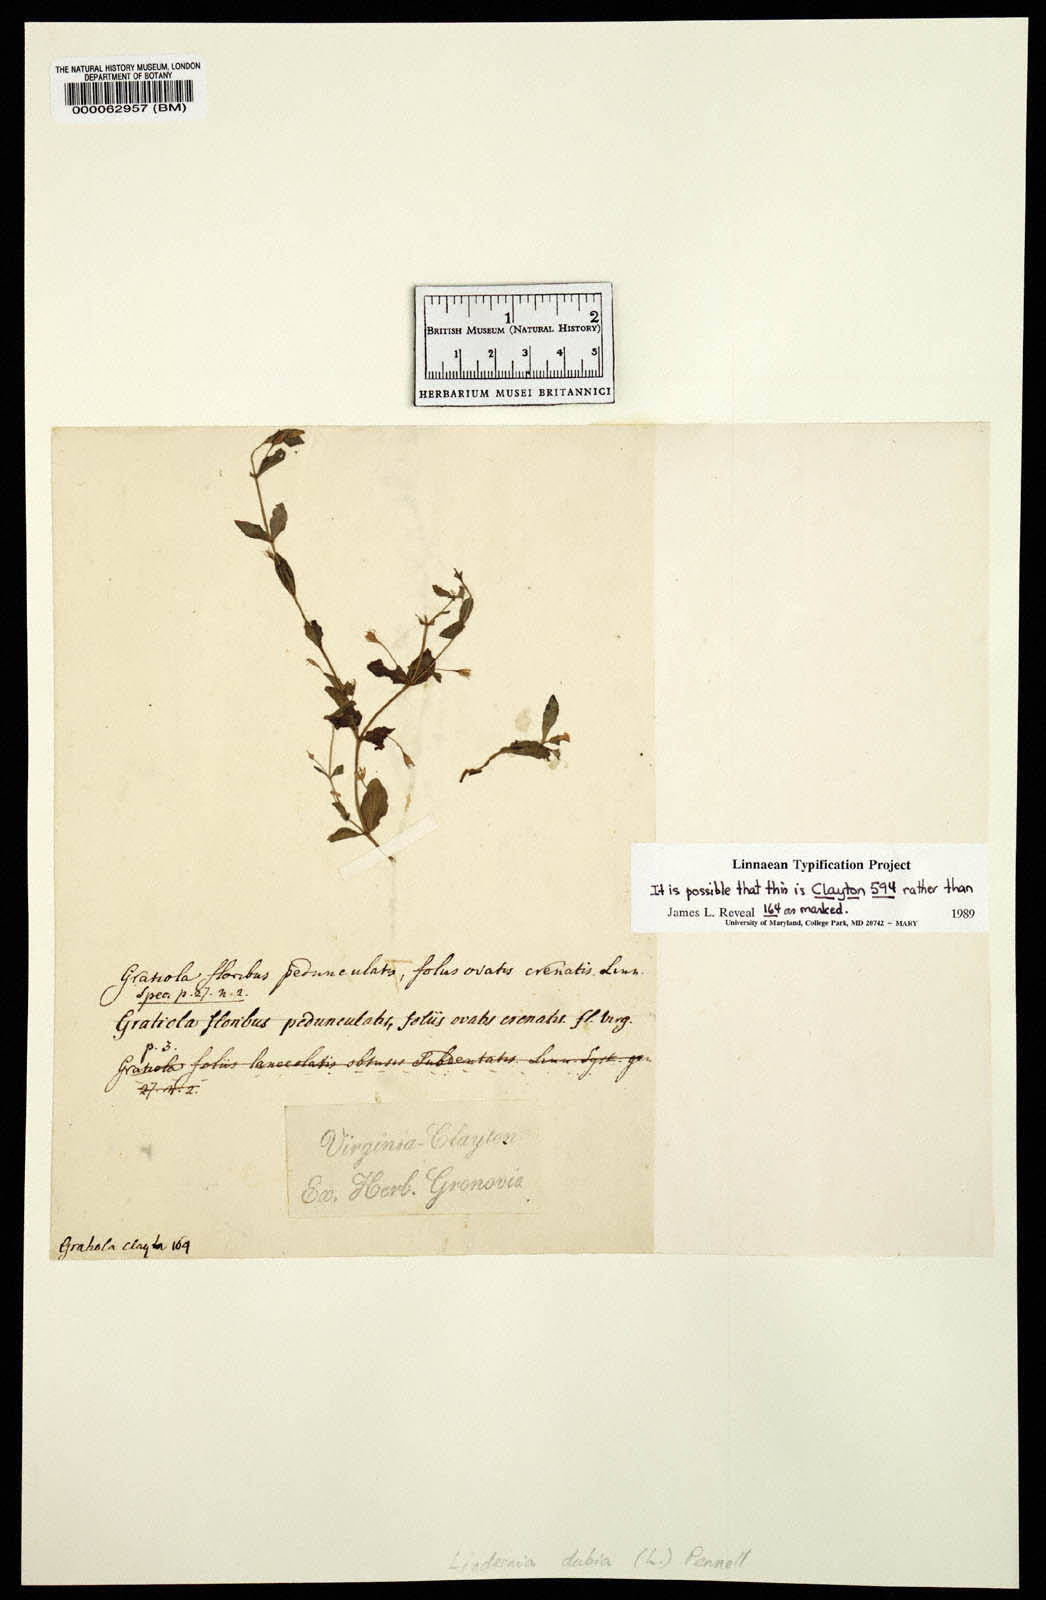 THE NATURAL HISTORY MUSEUM, LONDON
DEPARTMENT OF BOTANY
000062957 (BM)
1 2
BRITISH MUSEUM (NATURAL HISTORY)
1 2 3 4 5
HERBARIUM MUSEI BRITANNICI
Linnaean Typification Project
It is possible that this is Clayton 594 rather than
James L. Reveal 164 as marked. 1989
University of Maryland, College Park, MD 20742 – MARY
Gratiola floribus pedunculatis, foliis ovatis crenatis. Linn.
Spec. p. 27. n. 2.
Gratiola floribus pedunculatis, foliis ovatis crenatis. fl. Virg.
p. 3.
Gratiola foliis lanceolatis obtusis Subdentatis. Linn. Syst. gen
27. n. 2.
Virginia-Clayton
Ex. Herb. Gronovia
Gratiola clayt. 164
Lindernia dubia (L.) Pennell